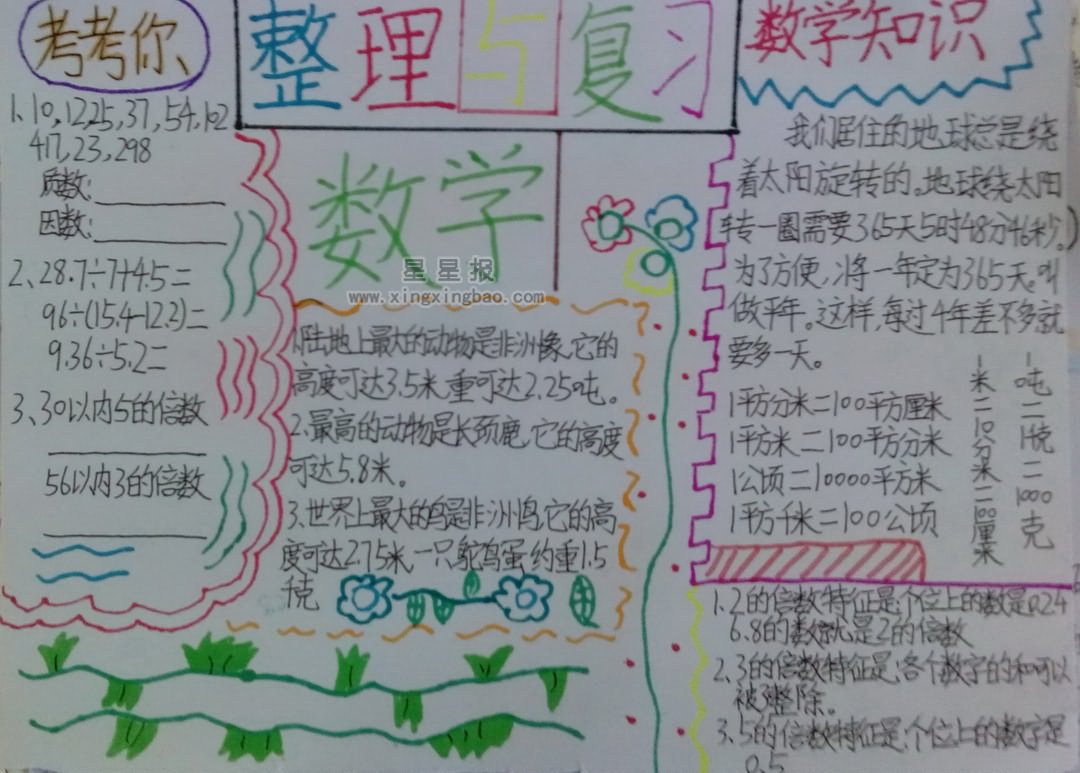 考考你、
1、10,12,25,37,54,102
417,23,298
质数:
因数:
2、28.7÷7+4.5=
96÷(15.4-12.2)=
9.36÷5.2=
3、30以内5的倍数
56以内3的倍数
整理与复习
数学
星星报
www.xingxingbao.com
1.陆地上最大的动物是非洲像,它的
高度可达3.5米,重可达2.25吨。
2.最高的动物是长颈鹿,它的高度
可达5.8米。
3.世界上最大的鸟是非洲鸟,它的高
度可达2.75米,一只鸵鸟蛋约重1.5
千克
数学知识
我们居住的地球总是绕
着太阳旋转的。地球绕太阳
转一圈需要365天5时48分46秒。
为了方便,将一年定为365天。叫
做平年。这样,每过4年差不多就
要多一天。
1平方分米=100平方厘米
1平方米=100平方分米
1公顷=10000平方米
1平方千米=100公顷
1米=10分米=100厘米
1吨=1千克=1000克
1.2的倍数特征是:个位上的数是0.2.4
6.8的数就是2的倍数
2.3的倍数特征是:各个数字的和可以
被3整除。
3.5的倍数特征是:个位上的数字是
0.5